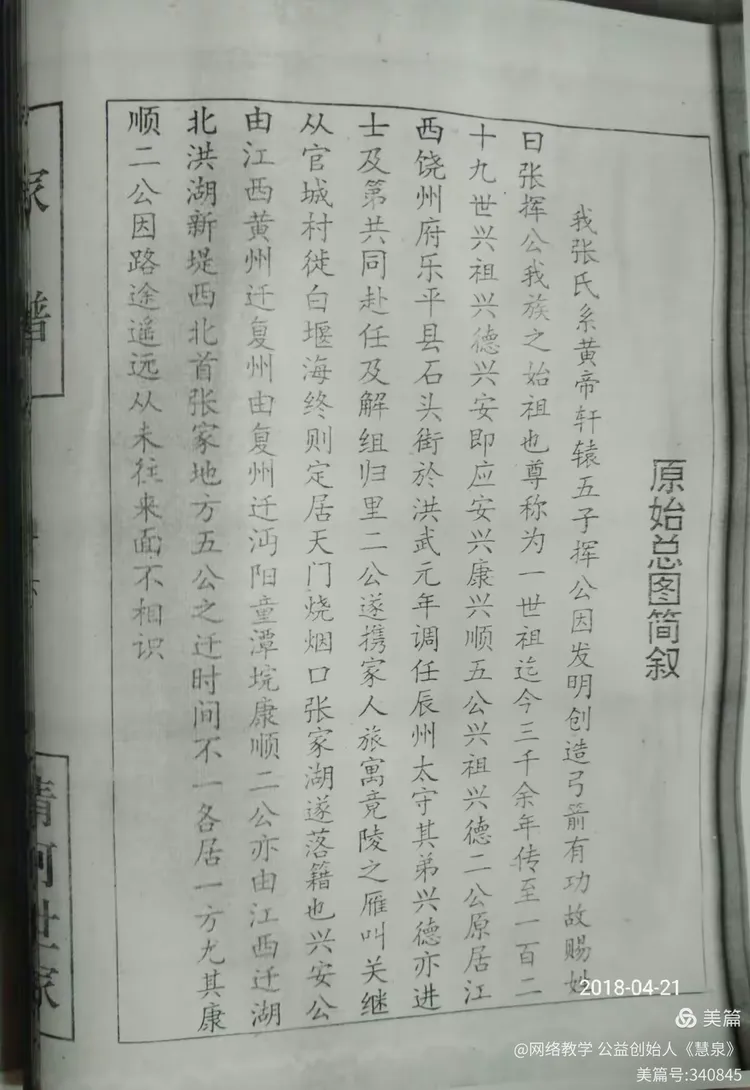 原始总图简叙
我张氏系黄帝轩辕五子挥公因发明创造弓箭有功故赐姓
曰张挥公我族之始祖也尊称为一世祖迄今三千余年传至一百二
十九世兴祖兴德兴安即应安兴康兴顺五公兴祖兴德二公原居江
西饶州府乐平县石头街於洪武元年调任辰州太守其弟兴德亦进
士及第共同赴任及解组归里二公遂携家人旅寓竟陵之雁叫关继
从官城村徙白堰海终则定居天门烧烟口张家湖遂落籍也兴安公
由江西黄州迁复州由复州迁沔阳童潭垸康顺二公亦由江西迁湖
北洪湖新堤西北首张家地方五公之迁时间不一各居一方尤其康
顺二公因路途遥远从未往来面不相识
家谱
清河世家
2018-04-21
美篇
@网络教学 公益创始人《慧泉》
美篇号:340845